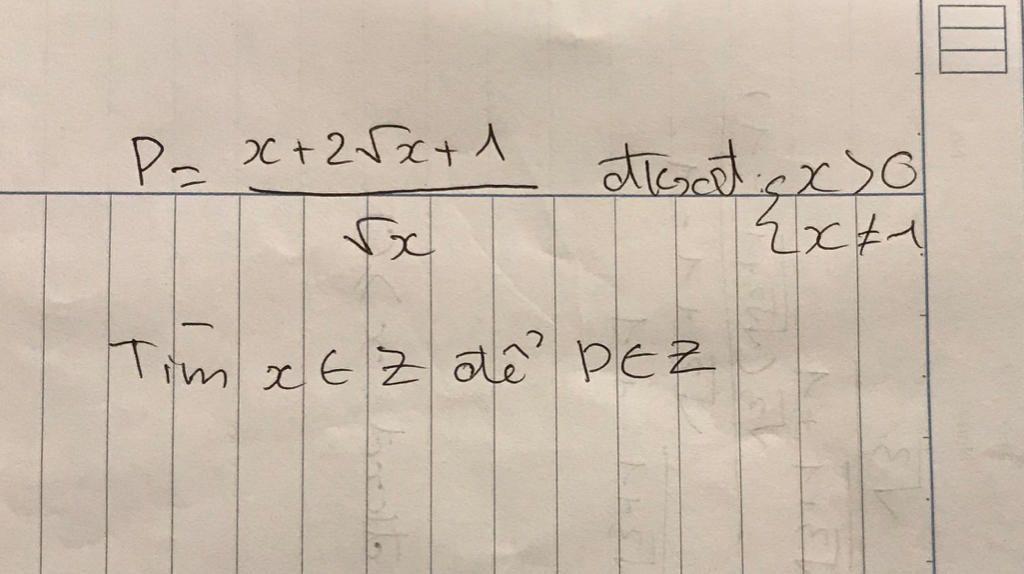 P = \frac{x+2\sqrt{x}+1}{\sqrt{x}} đkxđ: { x>0
{ x≠1
Tìm x ∈ Z để P ∈ Z